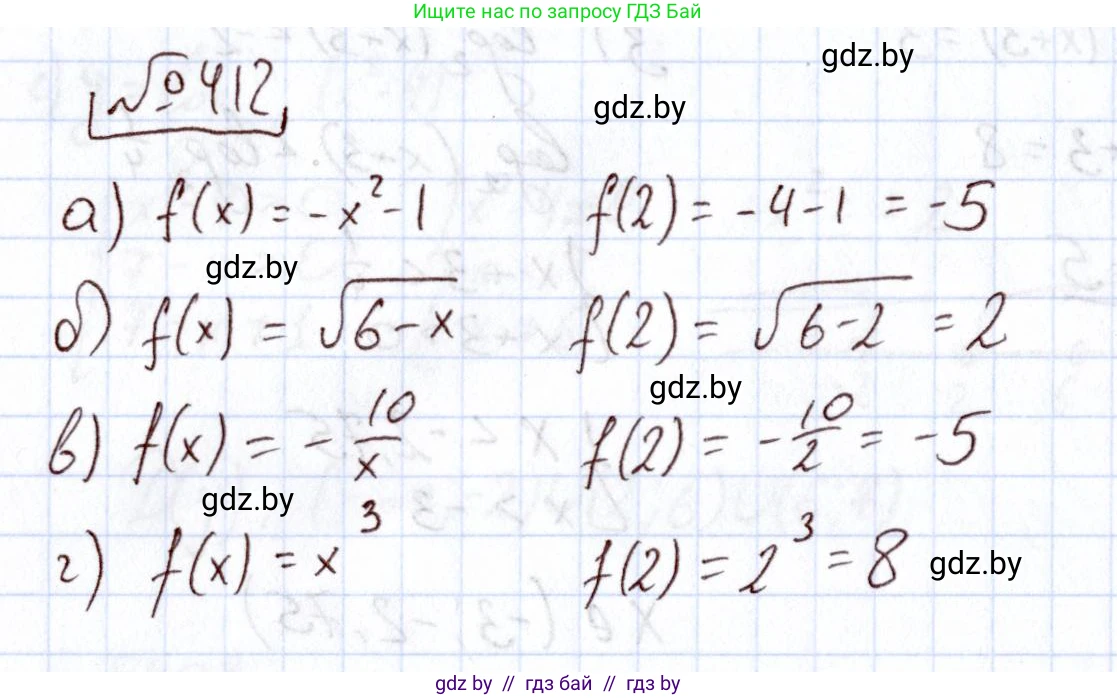 Ищите нас по запросу ГДЗ Бай
gdz.by
№ 412
gdz.by
а) f(x) = -x² - 1 f(2) = -4 - 1 = -5
gdz.by
б) f(x) = √(6 - x) f(2) = √(6 - 2) = 2
gdz.by
в) f(x) = - 10/x f(2) = - 10/2 = -5
gdz.by
г) f(x) = x³ f(2) = 2³ = 8
gdz.by
gdz.by // гдз бай // гдз by